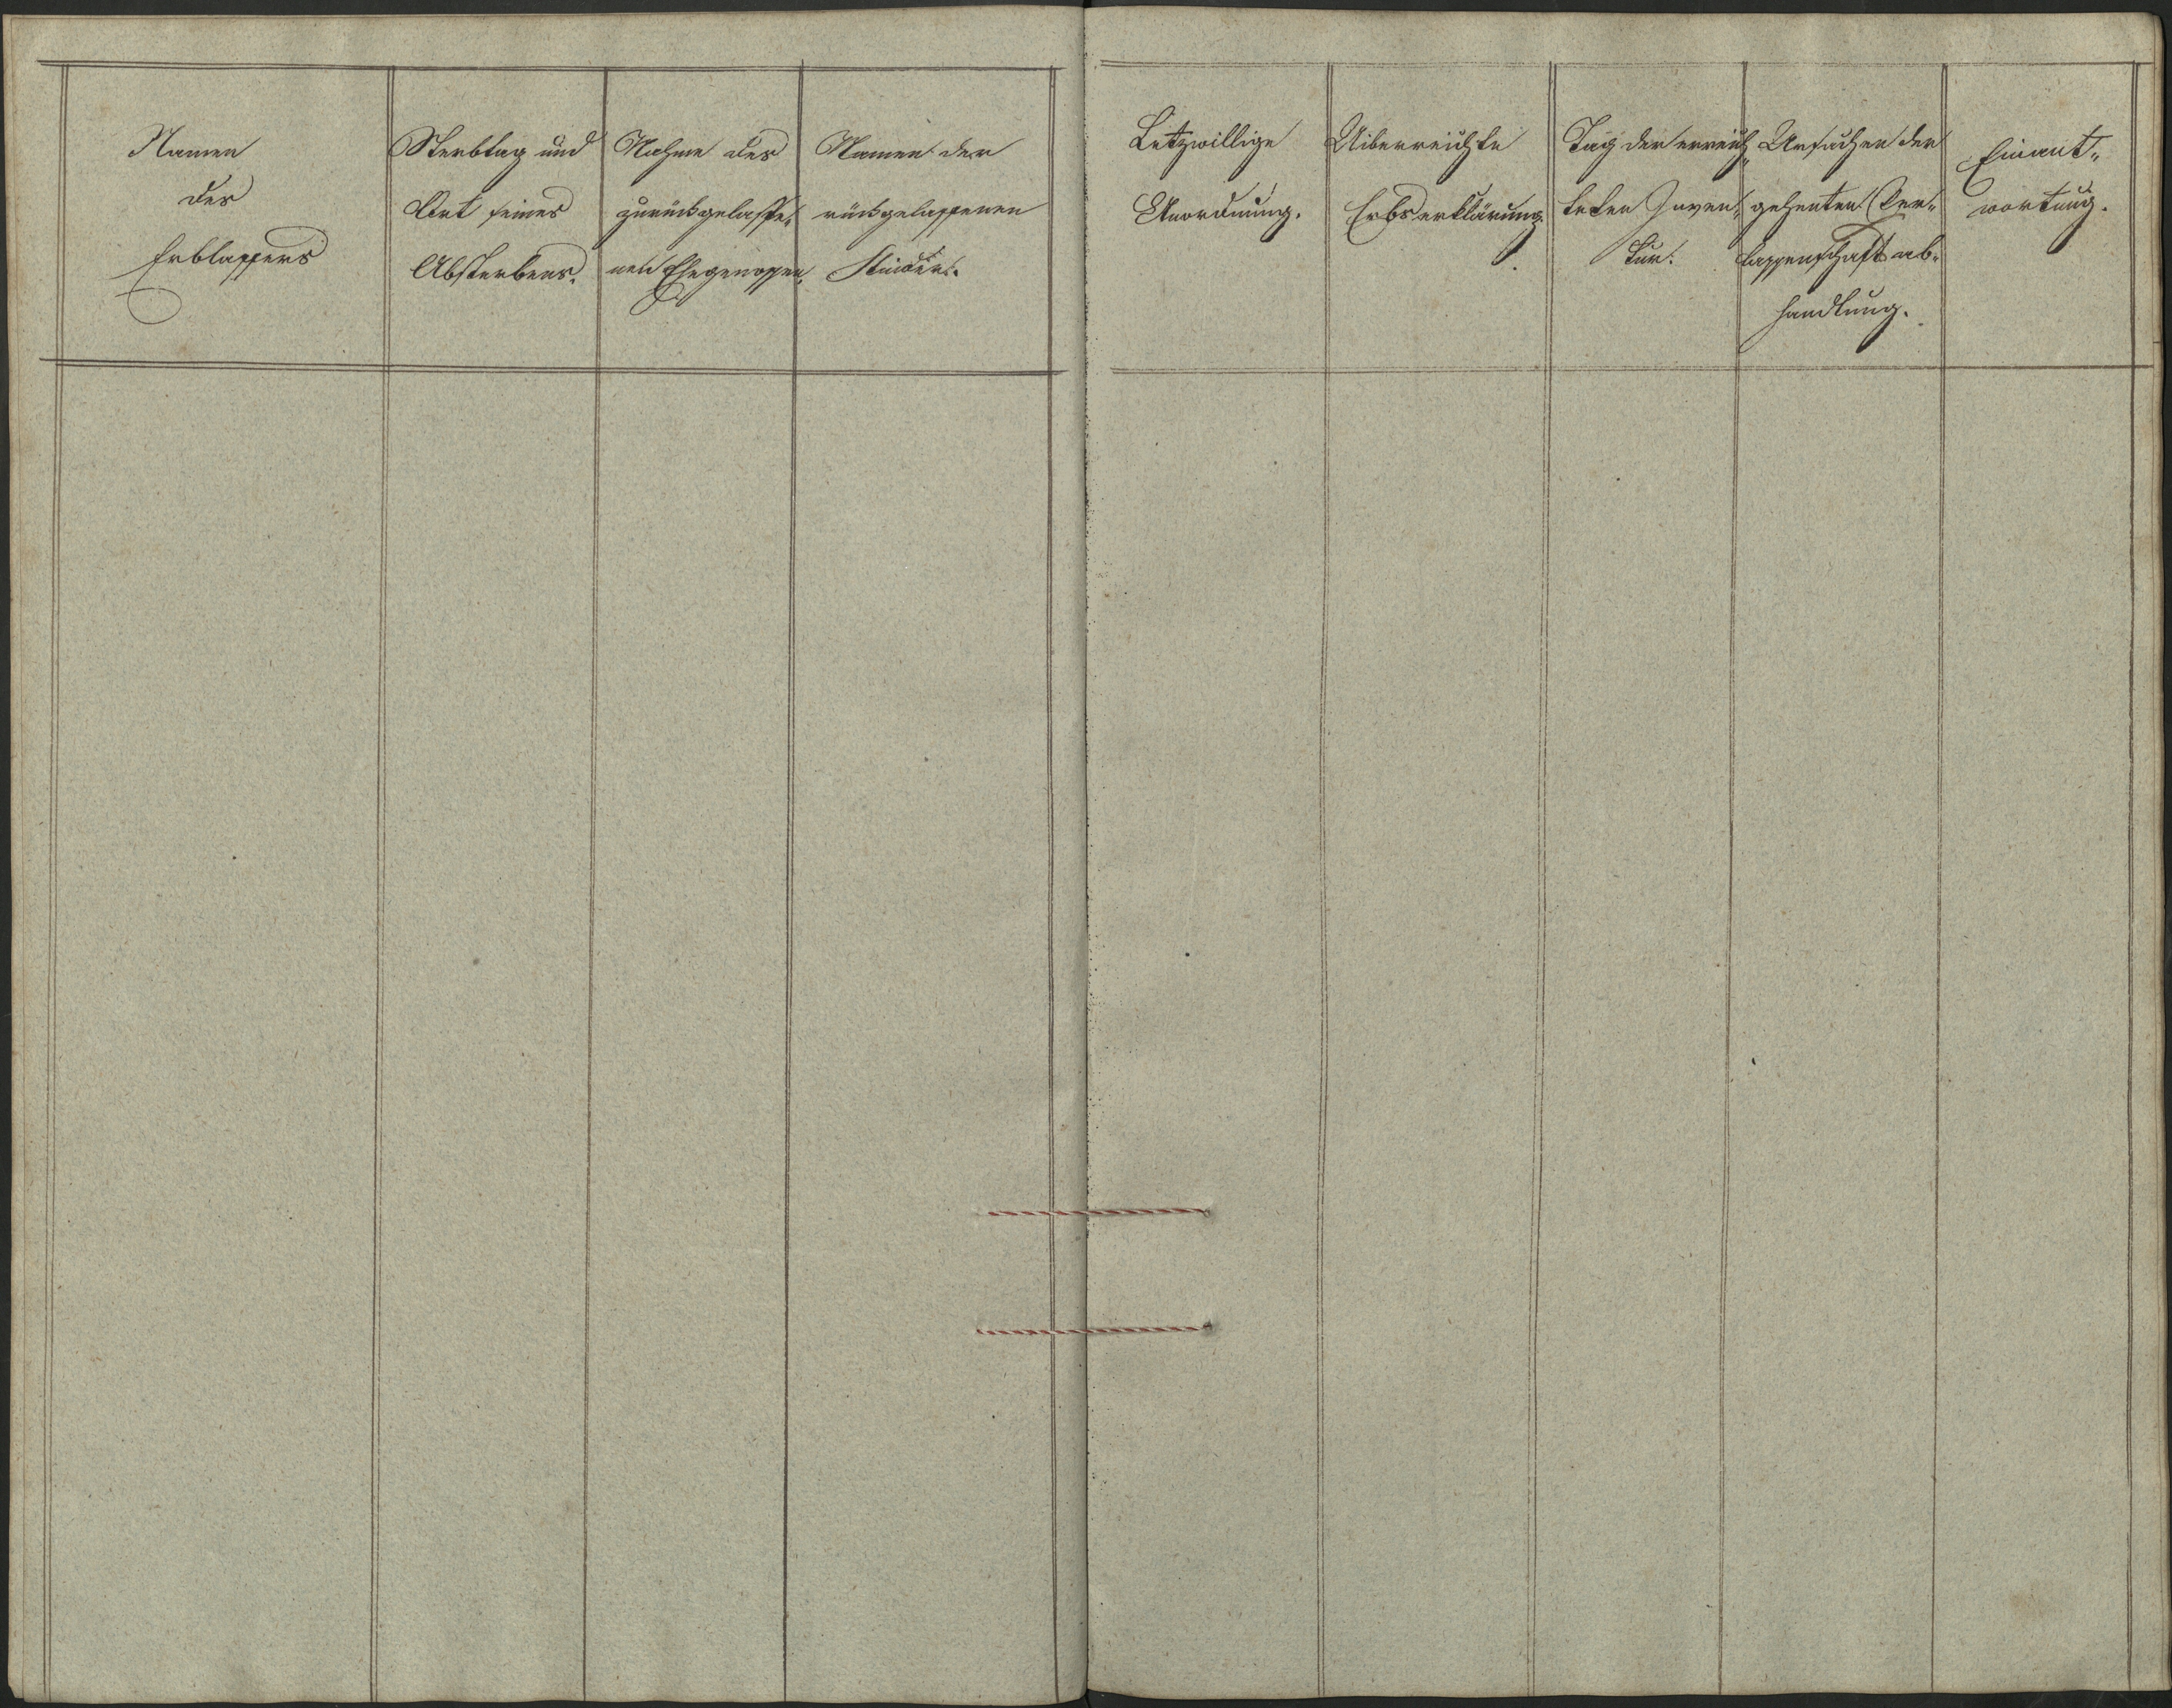 Namen
des
Erblassers
Sterbtag und
Ort seines
Absterbens.
Nahme des
zurückgelasse„
nen Ehegenossen.
Namen der
rückgelassenen
Kinder.
Letzwillige
Anordnung.
Uiberreichte
Erbserklärung.
Tag der erreich„
teten Inven„
tur.
Ursachen der
gehenten Ver„
lassenschaft ab„
handlung.
Einant„
wortung.